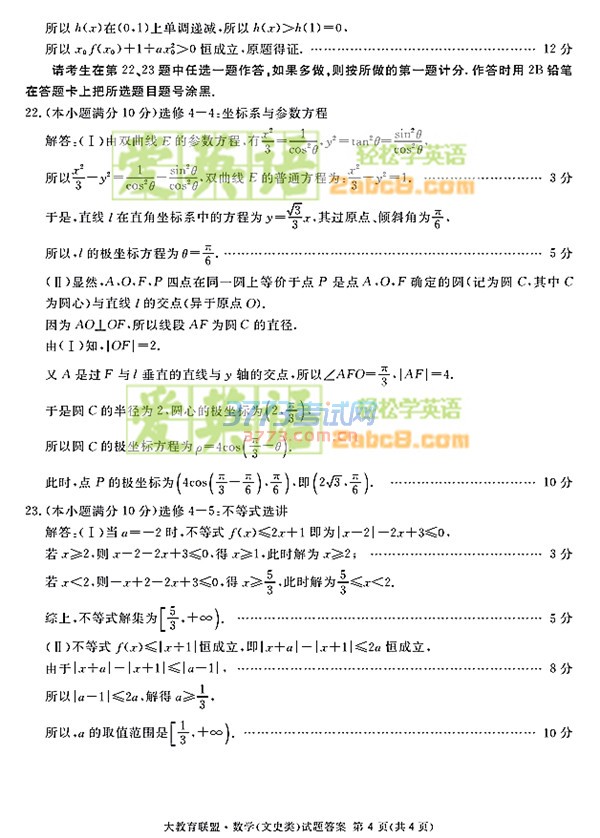 所以 h(x)在(0,1)上单调递减,所以 h(x)>h(1)=0.
所以 x₀f(x₀)+1+ax₀²>0 恒成立,原题得证. …… 12 分
请考生在第 22、23 题中任选一题作答,如果多做,则按所做的第一题计分.作答时用 2B 铅笔
在答题卡上把所选题目题号涂黑.
22.(本小题满分 10 分)选修 4－4:坐标系与参数方程
解答:(Ⅰ)由双曲线 E 的参数方程,有x²/3=1/cos²θ,y²=tan²θ=sin²θ/cos²θ,
所以x²/3－y²=1/cos²θ－sin²θ/cos²θ,双曲线 E 的普通方程为:x²/3－y²=1. …… 3 分
于是,直线 l 在直角坐标系中的方程为 y=√3/3 x,其过原点、倾斜角为π/6,
所以,l 的极坐标方程为 θ=π/6. …… 5 分
(Ⅱ)显然,A、O、F、P 四点在同一圆上等价于点 P 是点 A、O、F 确定的圆(记为圆 C,其中 C
为圆心)与直线 l 的交点(异于原点 O).
因为 AO⊥OF,所以线段 AF 为圆 C 的直径.
由(Ⅰ)知,|OF|=2.
又 A 是过 F 与 l 垂直的直线与 y 轴的交点,所以∠AFO=π/3,|AF|=4.
于是圆 C 的半径为 2,圆心的极坐标为(2,π/3).
所以圆 C 的极坐标方程为 ρ=4cos(π/3－θ).
此时,点 P 的极坐标为(4cos(π/3－π/6),π/6),即(2√3,π/6). …… 10 分
23.(本小题满分 10 分)选修 4－5:不等式选讲
解答:(Ⅰ)当 a=－2 时,不等式 f(x)≤2x+1 即为|x－2|－2x+3≤0,
若 x≥2,则 x－2－2x+3≤0,得 x≥1,此时解为 x≥2; …… 3 分
若 x<2,则－x+2－2x+3≤0,得 x≥5/3,此时解为5/3≤x<2.
综上,不等式解集为[5/3,+∞). …… 5 分
(Ⅱ)不等式 f(x)≤|x+1|恒成立,即|x+a|－|x+1|≤2a 恒成立,
由于|x+a|－|x+1|≤|a－1|, …… 8 分
所以|a－1|≤2a,解得 a≥1/3,
所以,a 的取值范围是[1/3,+∞). …… 10 分
大教育联盟·数学(文史类)试题答案 第 4 页(共 4 页)
爱英语
轻松学英语
2abc8.com
爱英语
轻松学英语
2abc8.com
3773考试网
3773.com.cn